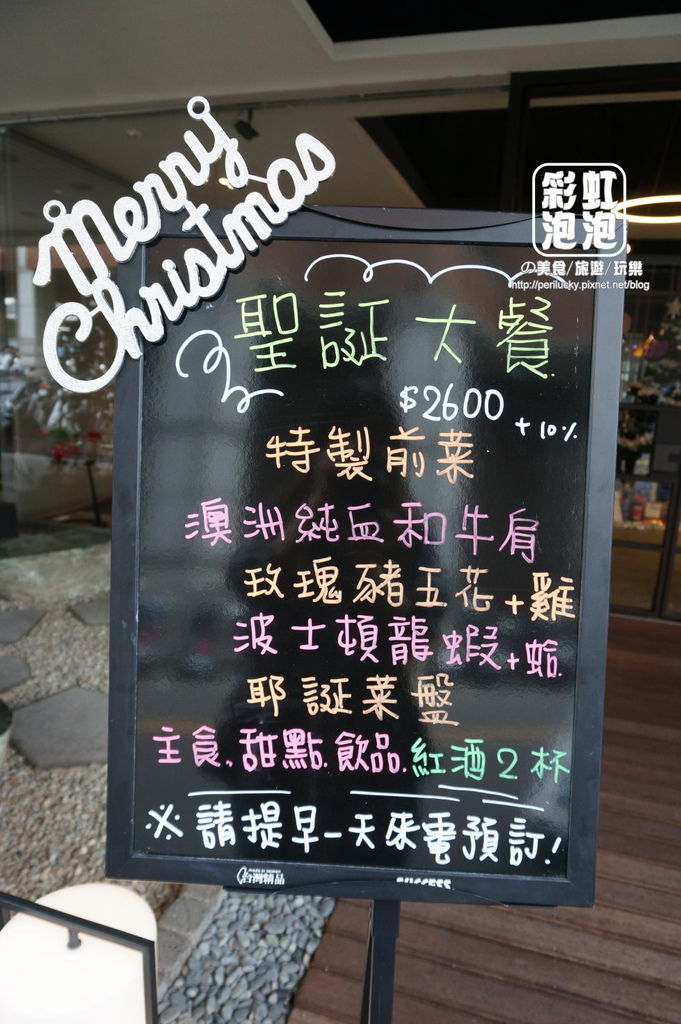 Merry
Christmas
彩虹
泡泡
の美食/旅遊/玩樂
http://perilucky.pixnet.net/blog
聖誕大餐
$2600
+10%
特製前菜
澳洲純血和牛肩
玫瑰豬五花+雞
波士頓龍蝦+蛤
耶誕菜盤
主食.甜點.飲品.紅酒2杯
※請提早一天來電預訂!
made in taiwan
台灣精品
SUCCESS